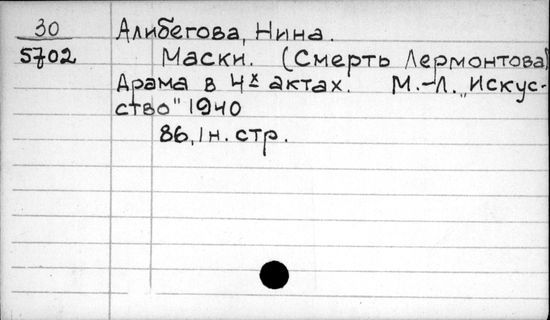 30 Алибегова, Нина.
5702 Маски. (Смерть Лермонтова)
Драма в 4х актах. М.-Л. „Искус-
ство" 1940
86, 1 н. стр.